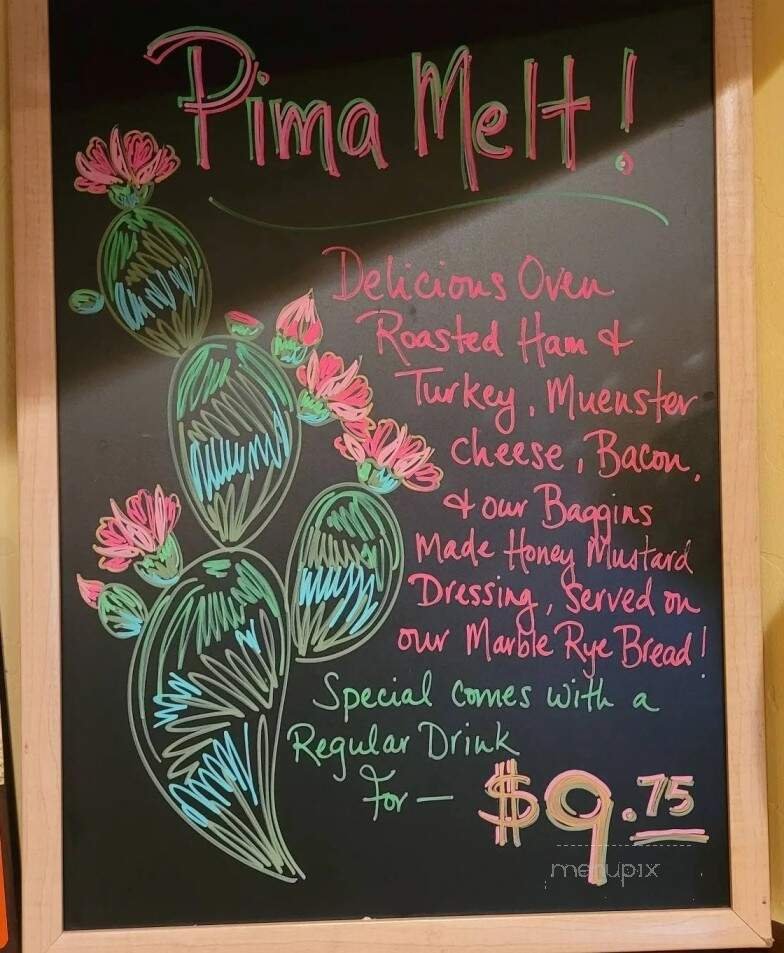 Pima Melt!
Delicious Oven
Roasted Ham &
Turkey, Muenster
cheese, Bacon,
& our Baggins
Made Honey Mustard
Dressing, Served on
our Marble Rye Bread!
Special comes with a
Regular Drink
for — $9.75
menupix